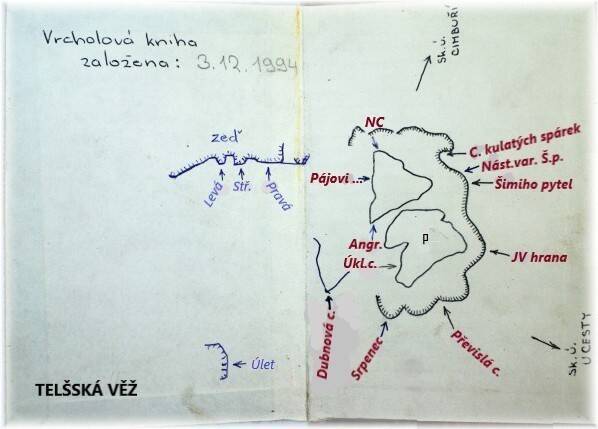 Vrcholová kniha
založena: 3.12.1994
Sk.ú.
CIMBUŘÍ
zeď
Levá
Stř.
Pravá
NC
C. kulatých spárek
Nást.var. Š.p.
Šimiho pytel
Pájovi ...
p
Angr.
Úkl.c.
JV hrana
Dubnová c.
Srpenec
Převislá c.
Sk.ú.
U CESTY
Úlet
TELŠSKÁ VĚŽ